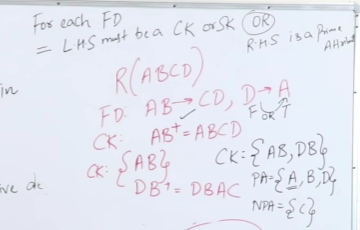 For each FD
= LHS must be a CK or SK OR
RHS is a Prime
in
R(ABCD)
FD: AB → CD, D → A
F OR T
CK: AB⁺ = ABCD
CK: {AB}
DB⁺ = DBAC
CK = {AB, DB}
PA = {A, B, D}
NPA = {C}